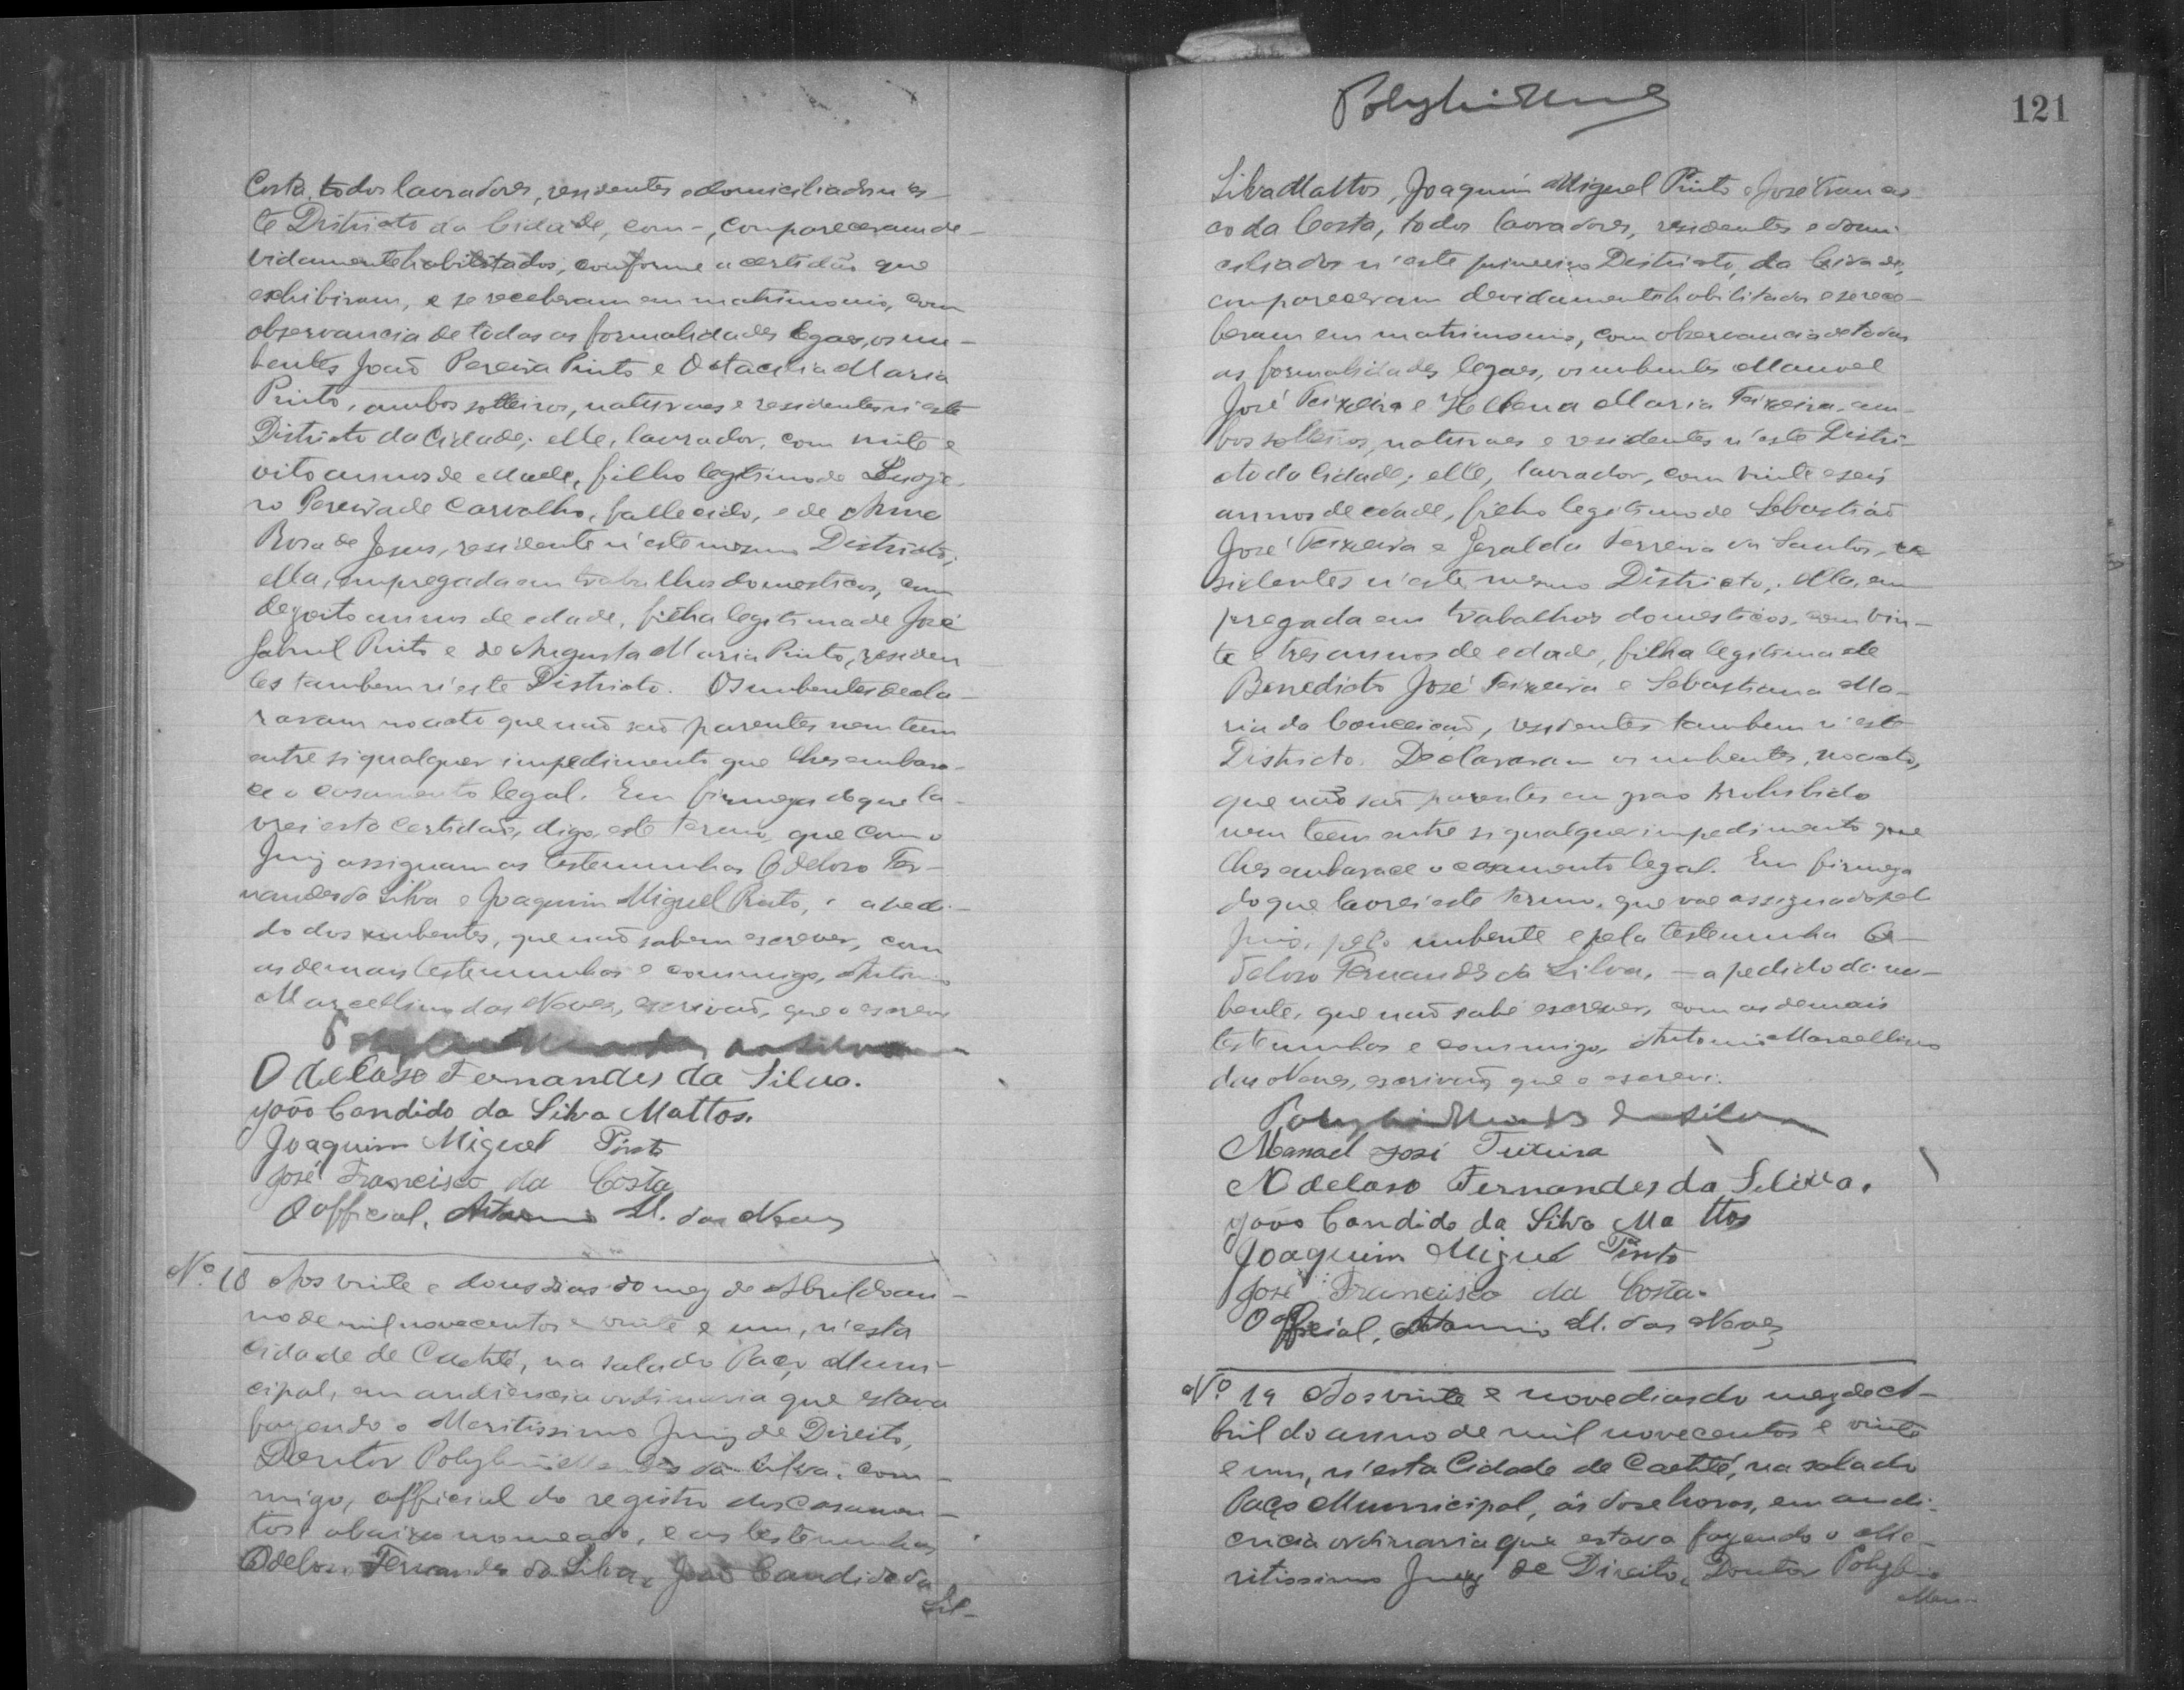 Costa, todos lavradores, residentes e domiciliados n'es-
te Districto da Cidade, com-, compareceram de-
vidamente habilitados, conforme a certidão que
exhibiram, e se receberam em matrimonio, com
observancia de todas as formalidades legaes, os nu-
bentes João Pereira Pinto e Otacilia Maria
Pinto, ambos solteiros, naturaes e residentes n'este
Districto da Cidade; elle, lavrador, com vinte e
oito annos de edade, filho legitimo de
ro Pereira de Carvalho, fallecido, e de Anna
Rosa de Jesus, residente n'este mesmo Districto;
ella, empregada em trabalhos domesticos, com
dezoito annos de edade, filha legitima de José
Gabriel Pinto e de Augusta Maria Pinto, residen
tes tambem n'este Districto. Os nubentes decla-
raram no acto que não são parentes nem teem
entre si qualquer impedimento que lhes embara-
ce o casamento legal. Em firmeza do que la-
vrei esta certidão, digo, este termo, que com o
Juiz assignam as testemunhas Odeloso Fer-
nandes da Silva e Joaquim Miguel Pinto, a pedi-
do dos nubentes, que não sabem escrever, com
as demais testemunhas e commigo, Antonio
Marcellino das Neves, escrivão, que o escrevi
Odeloso Fernandes da Silva.
João Candido da Silva Mattos.
Joaquim Miguel Pinto
José Francisco da Costa
O official, Antonio M. das Neves
Nº 18 Aos vinte e dous dias do mez de Abril do an-
no de mil novecentos e vinte e um, n'esta
Cidade de Caetité, na sala do Paço Muni-
cipal, em audiencia ordinaria que estava
fazendo o Meritissimo Juiz de Direito,
Doutor Polybio Mendes da Silva, com-
migo, official do registro dos Casamen-
tos abaixo nomeado, e as testemunhas
Odeloso Fernandes da Silva, João Candido da
Sil-
Polybio Mendes
121
Silva Mattos, Joaquim Miguel Pinto e José Francis-
co da Costa, todos lavradores, residentes e domi-
ciliados n'este primeiro Districto da Cidade,
compareceram devidamente habilitados e se rece-
beram em matrimonio, com observancia de todas
as formalidades legaes, os nubentes Manoel
José Teixeira e Hellena Maria Teixeira, am-
bos solteiros, naturaes e residentes n'este Distri-
cto da Cidade; elle, lavrador, com vinte e seis
annos de edade, filho legitimo de Sebastião
José Teixeira e Geralda Ferreira dos Santos, re
sidentes n'este mesmo Districto; ella, em
pregada em trabalhos domesticos, com vin-
te e tres annos de edade, filha legitima de
Benedicto José Teixeira e Sebastiana Ma-
ria da Conceição, residentes tambem n'este
Districto. Declararam os nubentes, no acto,
que não são parentes em grao prohibido
nem teem entre si qualquer impedimento que
lhes embarace o casamento legal. Em firmeza
do que lavrei este termo, que vae assignado pelo
Juiz, pelo nubente e pela testemunha O-
deloso Fernandes da Silva, - a pedido da nu-
bente, que não sabe escrever, com as demais
testemunhas e commigo, Antonio Marcellino
das Neves, escrivão, que o escrevi.
Polybio Mendes da Silva
Manoel José Teixeira
Odeloso Fernandes da Silva.
João Candido da Silva Mattos
Joaquim Miguel Pinto
José Francisco da Costa.
O Official, Antonio M. das Neves
Nº 19 Aos vinte e nove dias do mez de A-
bril do anno de mil novecentos e vinte
e um, n'esta Cidade de Caetité, na sala do
Paço Municipal, ás dose horas, em audi-
encia ordinaria que estava fazendo o Me-
ritissimo Juiz de Direito, Doutor Polybio
Men-